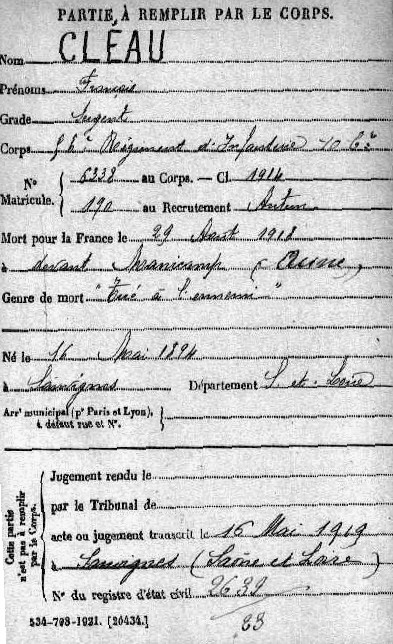 PARTIE À REMPLIR PAR LE CORPS.
Nom CLÉAU
Prénoms François
Grade Sergent
Corps 56e Régiment d'Infanterie 10 Cie
N° Matricule. 6238 au Corps. — Cl. 1914
190 au Recrutement Autun
Mort pour la France le 29 Août 1918
à devant Manicamp (Aisne)
Genre de mort "Tué à l'ennemi"
Né le 16 Mai 1894
à Sanvignes Département S. et. Loire
Arrt municipal (pr Paris et Lyon),
à défaut rue et N°.
Cette partie n'est pas à remplir par le Corps.
Jugement rendu le
par le Tribunal de
acte ou jugement transcrit le 16 Mai 1919
à Sanvignes (Saône et Loire)
N° du registre d'état civil 2632
33
534-708-1921. [26434.]